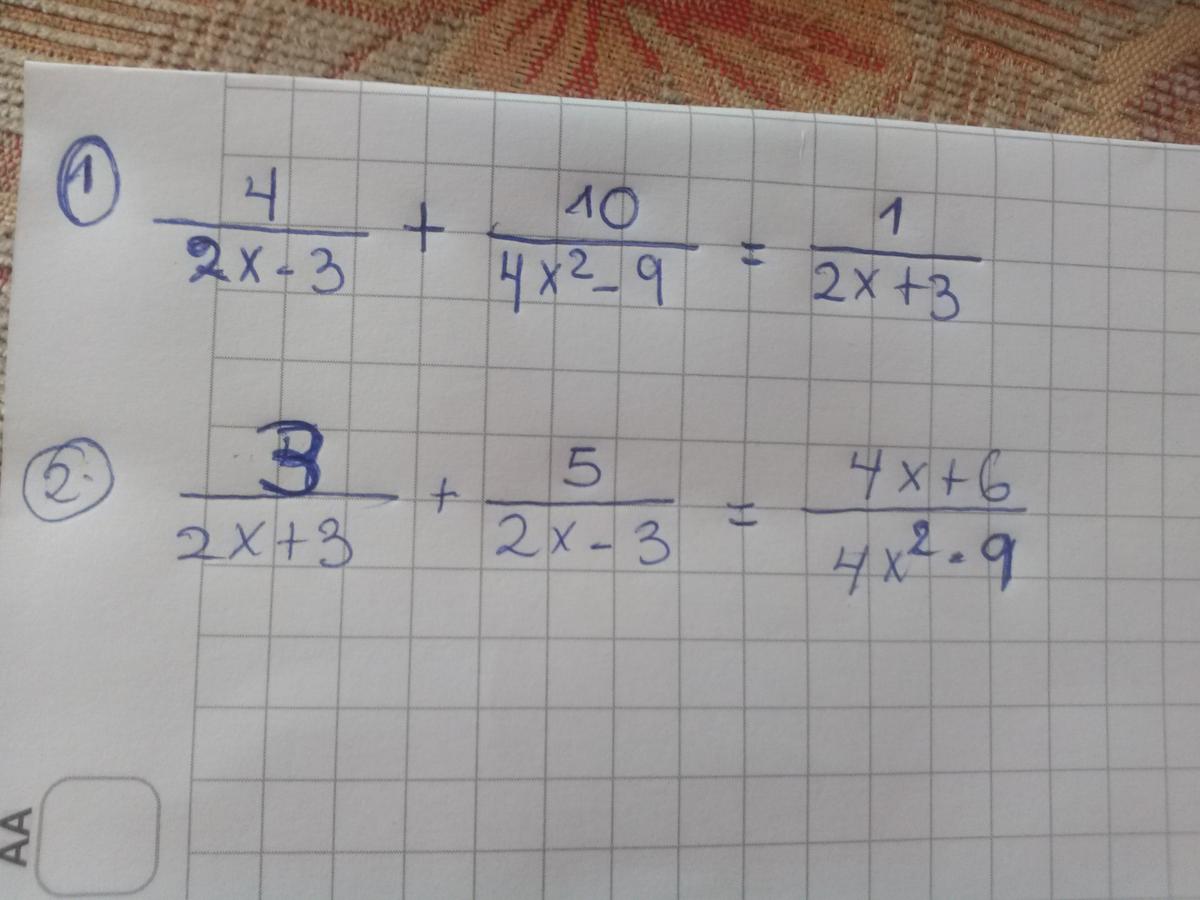 ① 4/(2x-3) + 10/(4x²-9) = 1/(2x+3)
② 3/(2x+3) + 5/(2x-3) = (4x+6)/(4x²-9)
AA